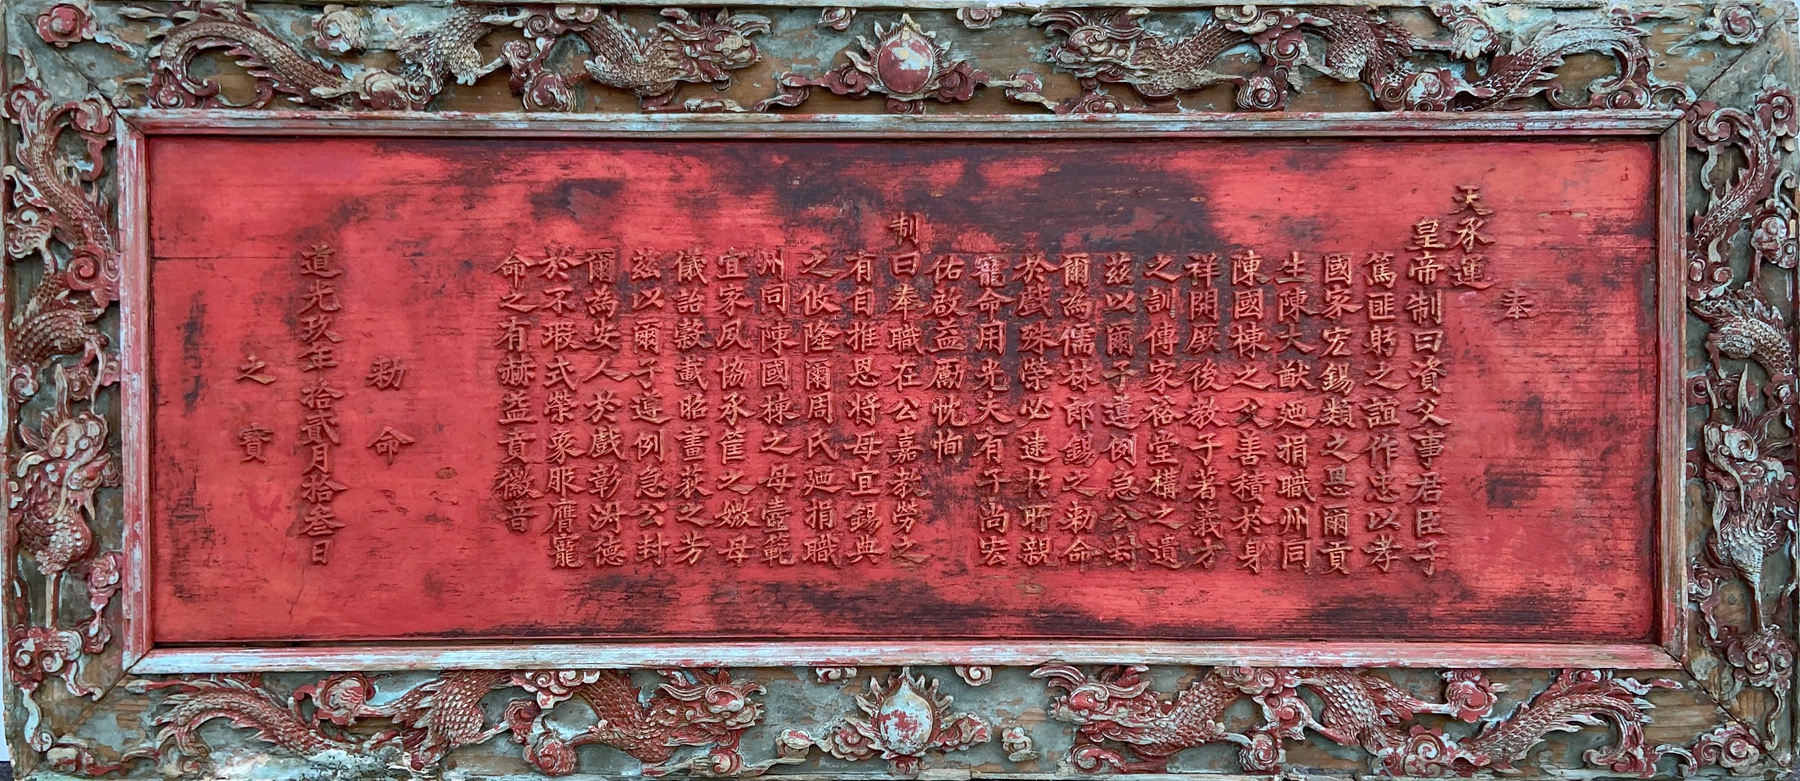 奉
天承運
皇帝制曰資父事君臣子
篤匪躬之誼作忠以孝
國家宏錫類之恩爾貢
生陳大猷廼捐職州同
陳國棟之父善積於身
祥開厥後教子著義方
之訓傳家裕堂構之遺
茲以爾子遵例急公封
爾為儒林郎錫之勅命
於戲殊榮必逮於所親
寵命用光夫有子尚宏
佑啟益勵忱恂
制曰奉職在公嘉教勞之
有自推恩將母宜錫典
之攸隆爾周氏廼捐職
州同陳國棟之母壼範
宜家夙協承筐之媺母
儀詒穀載昭畫荻之芳
茲以爾子遵例急公封
爾為安人於戲彰淑德
於不瑕式榮象服膺寵
命之有赫益賁徽音
勅命
道光玖年拾貳月拾叁日
之寶